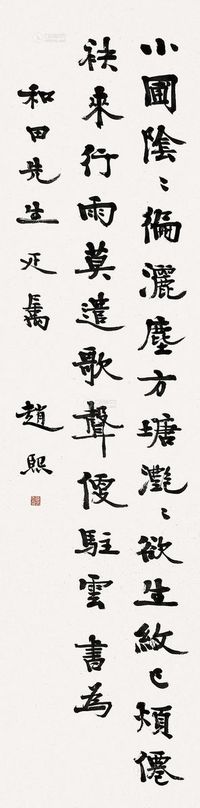 小圃陰〻徧灑塵方塘灩〻欲生紋已煩僊
袂來行雨莫遣歌聲便駐雲 書為
和田先生正屬 趙熙